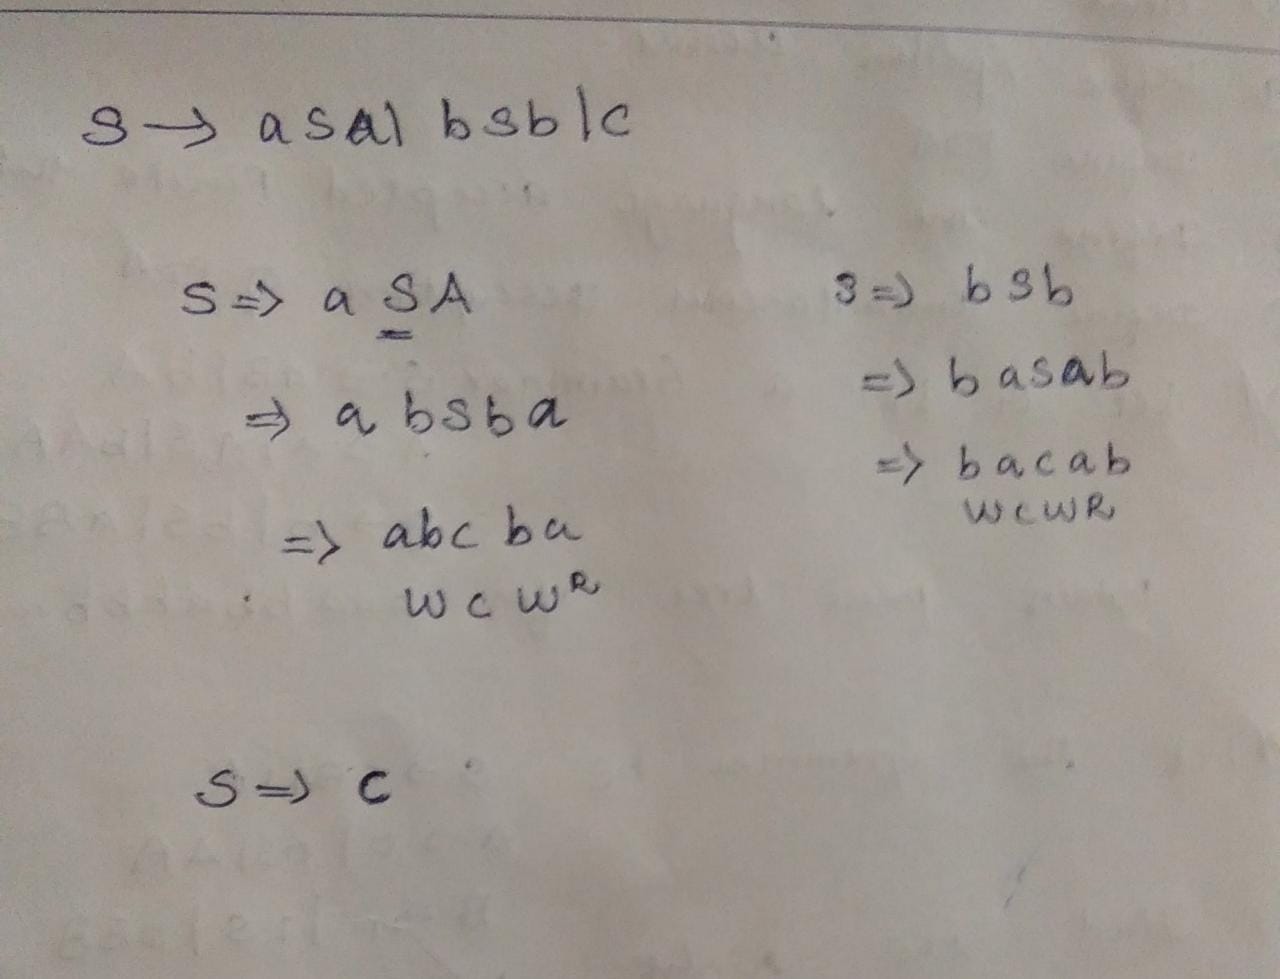 S → aSa| bsb|c
S ⇒ a S A
⇒ a bsba
⇒ abc ba
w c w^R
S ⇒ bsb
⇒ basab
⇒ bacab
wcwR
S ⇒ c